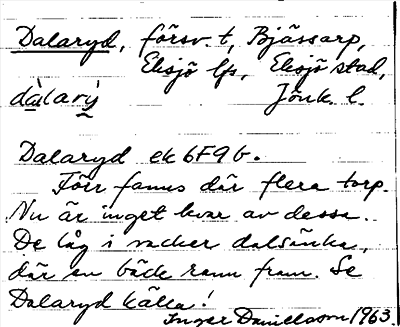 Dalaryd, försv. t, Bjässarp,
Eksjö lfs, Eksjö stad,
dàlarý Jönk. l.
Dalaryd ek 6F9b.
Förr fanns där flera torp.
Nu är inget kvar av dessa.
De låg i vacker dalsänka,
där en bäck rann fram. Se
Dalaryd källa!
Inger Danielsson 1963.